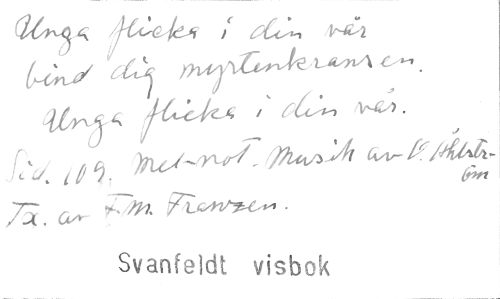 Unga flicka i din vår
bind dig myrtenkransen.
Unga flicka i din vår.
Sid. 109. Mel-not. Musik av O. Åhlström
Tx. av F.M. Franzen.
Svanfeldt visbok